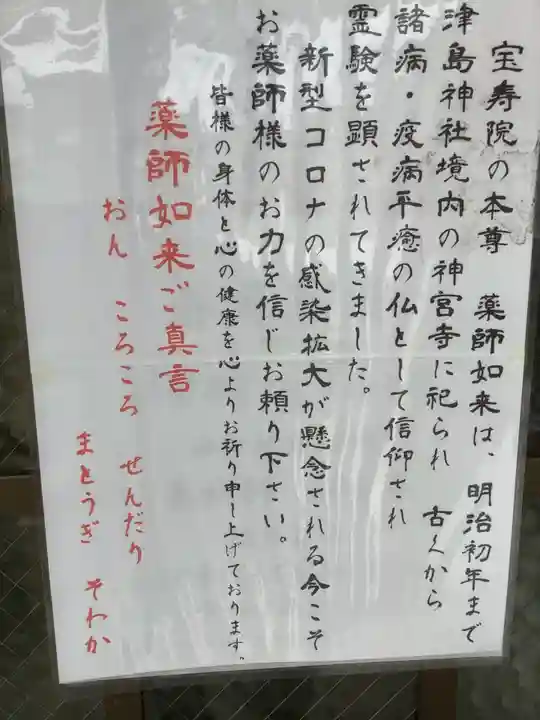 宝寿院の本尊 薬師如来は、明治初年まで
津島神社境内の神宮寺に祀られ 古くから
諸病・疫病平癒の仏として信仰され
霊験を顕されてきました。
新型コロナの感染拡大が懸念される今こそ
お薬師様のお力を信じお頼り下さい。
皆様の身体と心の健康を心よりお祈り申し上げております。
薬師如来ご真言
おん ころころ せんだり
まとうぎ そわか